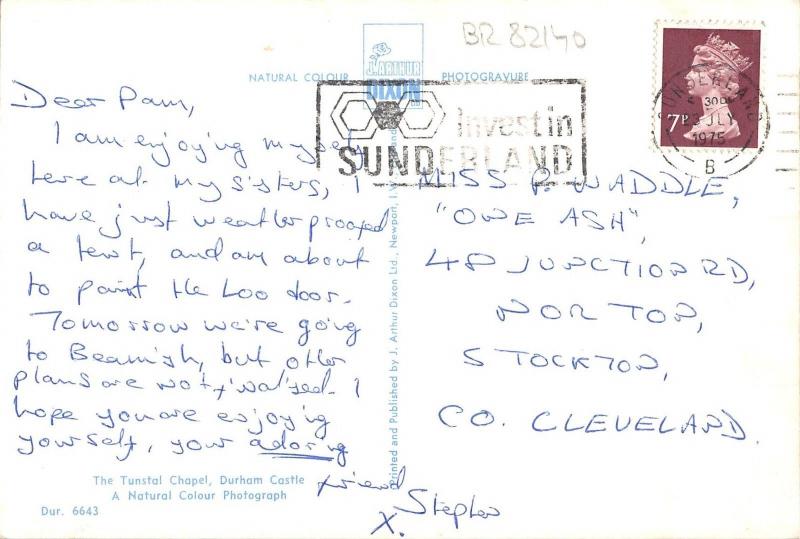 BR 82140
NATURAL COLOUR
J. ARTHUR
DIXON
PHOTOGRAVURE
Invest in
SUNDERLAND
SUNDERLAND
30
3 JLY
1975
B
7P
Dear Pam,
I am enjoying myself
here at my sisters, I
have just weatherproofed
a tent, and am about
to paint the Loo door.
Tomorrow we're going
to Beamish, but other
plans are not finalised. I
hope you are enjoying
yourself, your adoring
friend
Stephen
X.
MISS P. WADDLE,
"ONE ASH",
48 JUNCTION RD,
NORTON,
STOCKTON,
CO. CLEVELAND.
Printed and Published by J. Arthur Dixon Ltd., Newport, I
The Tunstal Chapel, Durham Castle
A Natural Colour Photograph
Dur. 6643